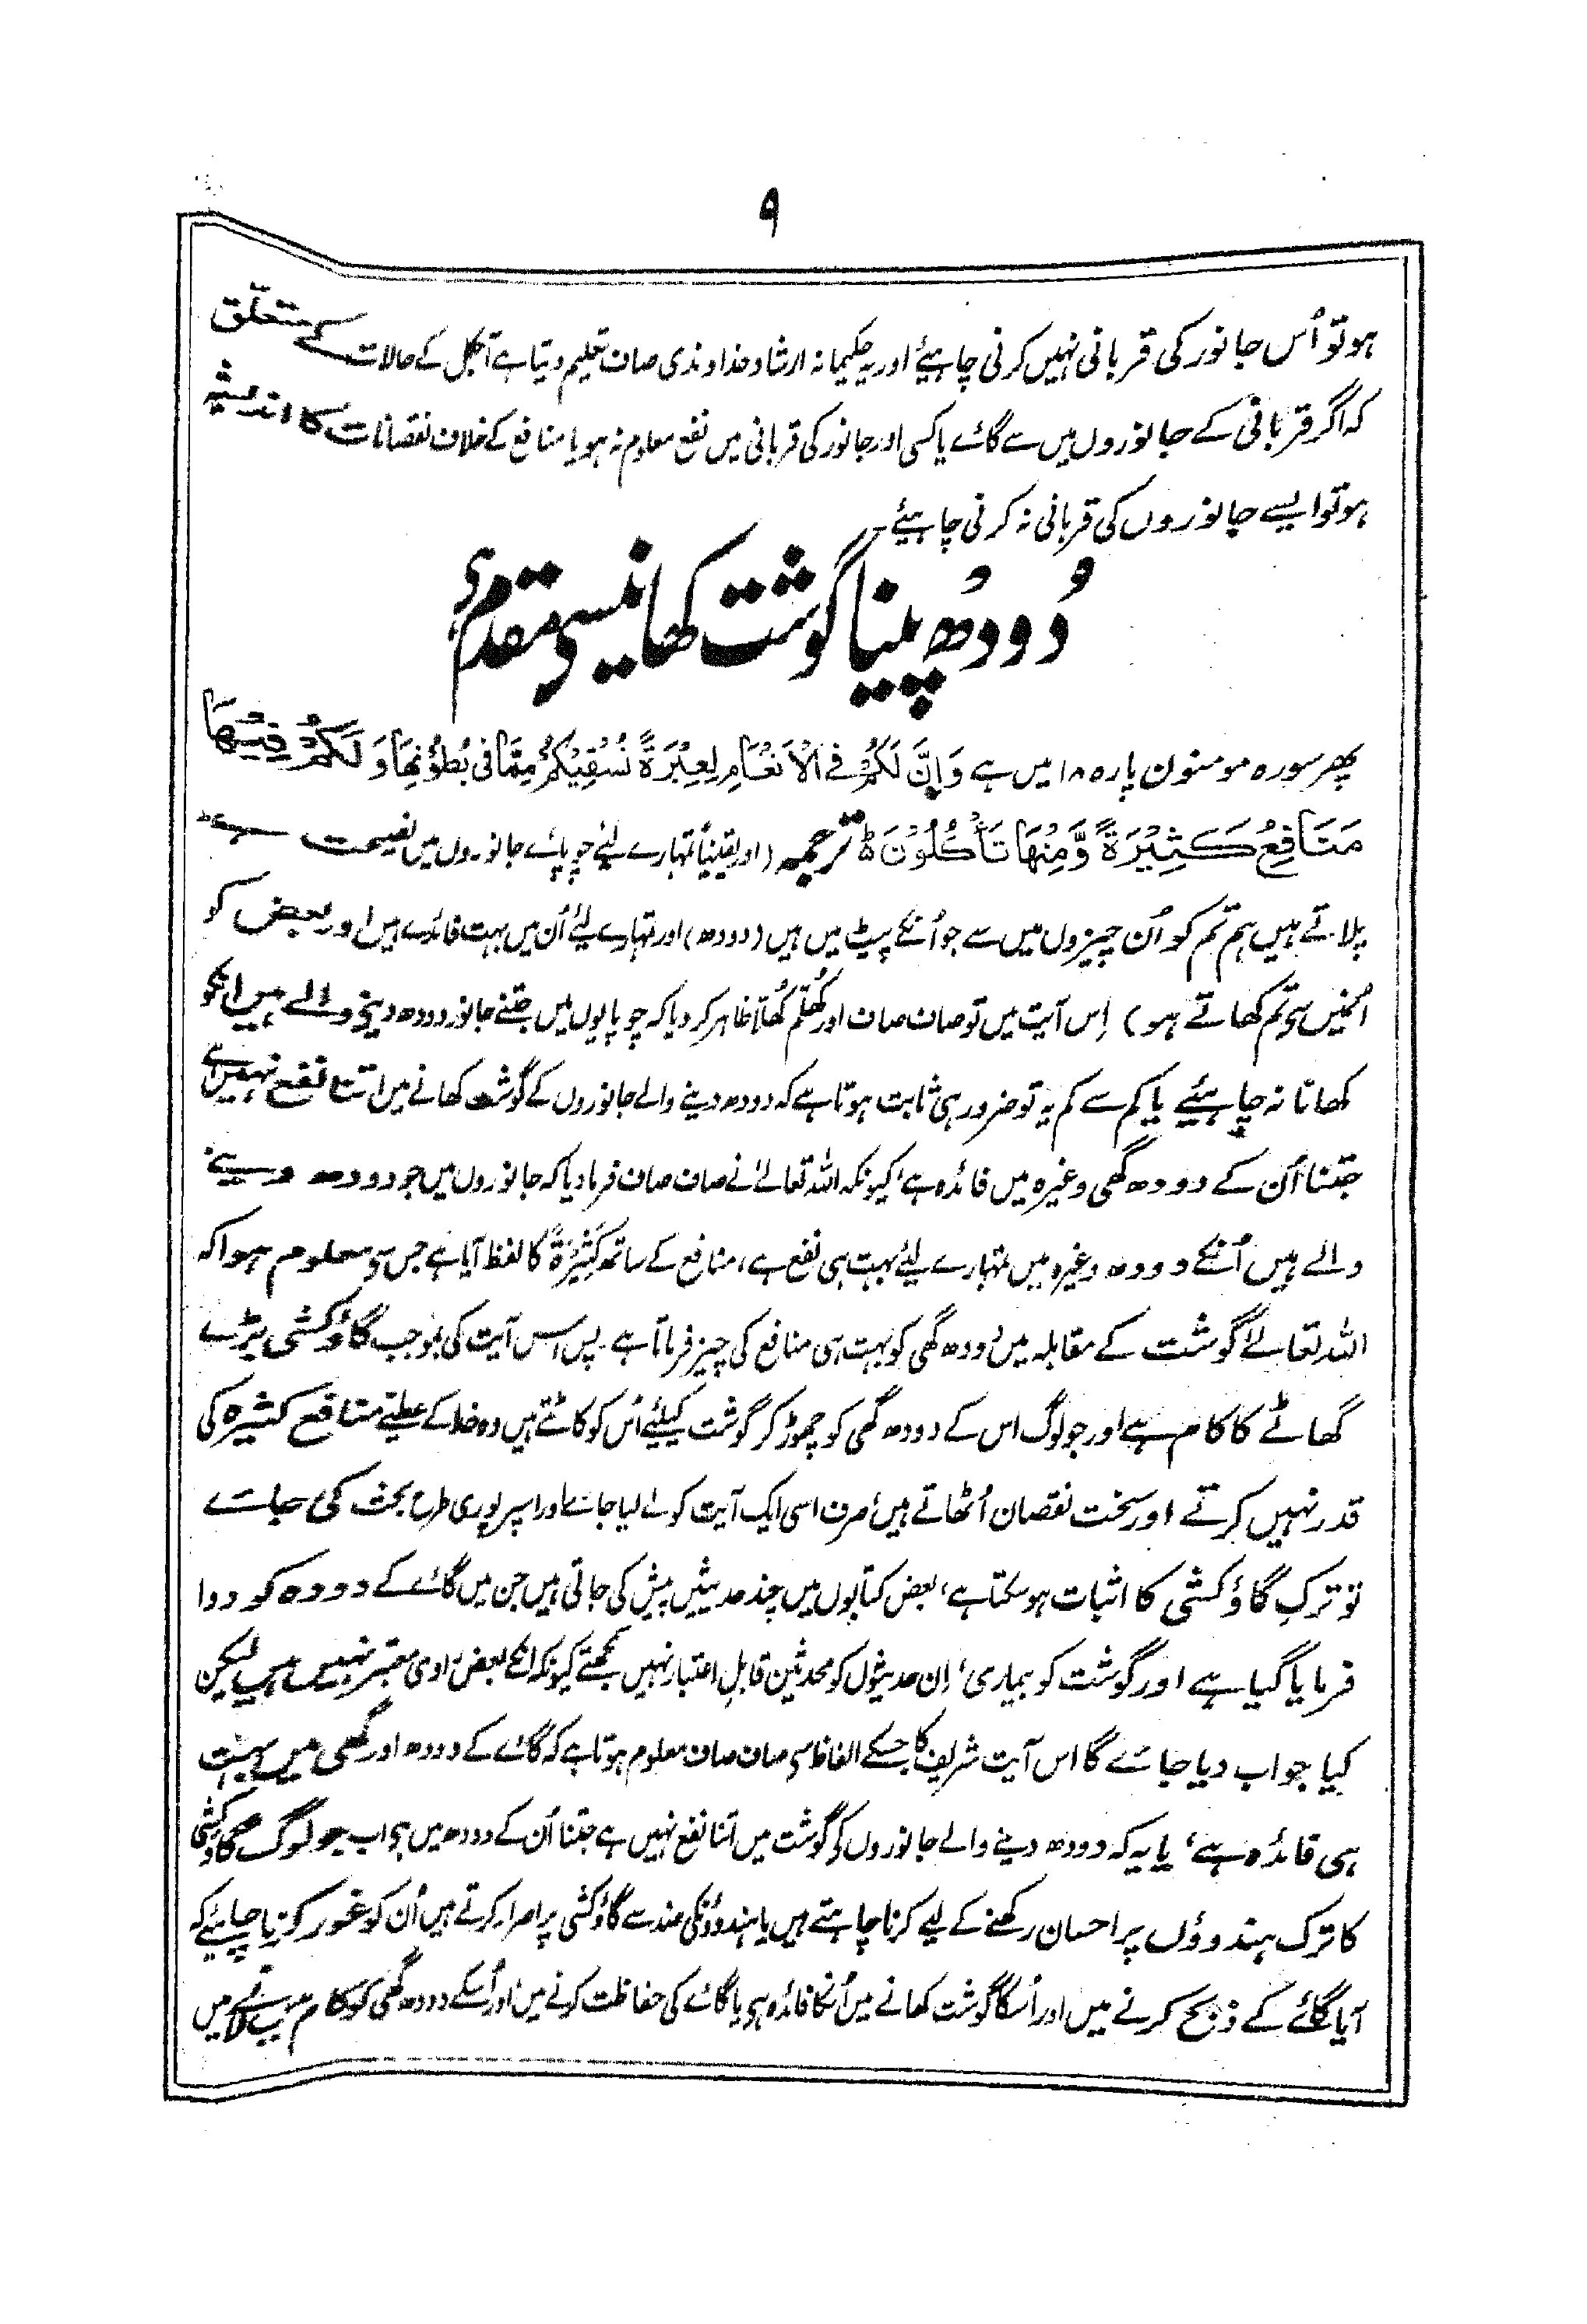 ۹
ہو تو اُس جانور کی قربانی نہیں کرنی چاہیئے اور یہ حکیمانہ ارشاد خداوندی صاف تعلیم دیتا ہے آجکل کے حالات کے متعلق
کہ اگر قربانی کے جانوروں میں سے گائے یا کسی اور جانور کی قربانی میں نفع معلوم نہ ہو یا منافع کے خلاف نقصانات کا اندیشہ
ہو تو ایسے جانوروں کی قربانی نہ کرنی چاہیئے۔
دُودھ پینا گوشت کھانیسے مقدم ہے
پھر سورہ مومنون پارہ ۱۸ میں ہے وَاِنَّ لَكُمْ فِي الْاَنْعَامِ لَعِبْرَةً نُسْقِيْكُمْ مِمَّا فِي بُطُوْنِهَا وَلَكُمْ فِيْهَا
مَنَافِعُ كَثِيْرَةً وَّمِنْهَا تَأْكُلُوْنَ ہ ترجمہ (اور یقیناً تمہارے لئے چوپائے جانوروں میں نصیحت ہے
پلاتے ہیں ہم تم کو اُن چیزوں میں سے جو اُنکے پیٹ میں ہیں (دودھ) اور تمہارے لئے اُن میں بہت فائدے ہیں اور بعض کو
اُنمیں سے تم کھاتے ہو) اِس آیت میں تو صاف صاف اور کُھلّم کُھلّا ظاہر کر دیا کہ چوپایوں میں جتنے جانور دودھ دینے والے ہیں انکو
کھانا نہ چاہیئے یا کم سے کم یہ تو ضرور ہی ثابت ہوتا ہے کہ دودھ دینے والے جانوروں کے گوشت کھانے میں اتنا نفع نہیں ہے
جتنا اُن کے دودھ گھی وغیرہ میں فائدہ ہے، کیونکہ اللہ تعالےٰ نے صاف صاف فرما دیا کہ جانوروں میں جو دودھ دینے
والے ہیں اُنکے دودھ وغیرہ میں تمہارے لئے بہت ہی نفع ہے، منافع کے ساتھ کَثِیْرَۃً کا لفظ آیا ہے جس سے معلوم ہوا کہ
اللہ تعالےٰ گوشت کے مقابلہ میں دودھ گھی کو بہت ہی منافع کی چیز فرماتا ہے۔ پس اس آیت کی بموجب گاؤکشی بڑے
گھاٹے کا کام ہے اور جو لوگ اس کے دودھ گھی کو چھوڑ کر گوشت کیلئے اُس کو کاٹتے ہیں وہ خدا کے عطیے منافع کثیرہ کی
قدر نہیں کرتے اور سخت نقصان اُٹھاتے ہیں، صرف اسی ایک آیت کو لے لیا جائے اور اسپر پوری طرح بحث کی جائے
تو ترکِ گاؤ کشی کا اثبات ہو سکتا ہے، بعض کتابوں میں چند حدیثیں پیش کی جاتی ہیں جن میں گائے کے دودھ کو دوا
فرمایا گیا ہے اور گوشت کو بیماری، اِن حدیثوں کو محدثین قابلِ اعتبار نہیں سمجھتے کیونکہ انکے بعض راوی معتبر نہیں ہیں لیکن
کیا جواب دیا جائے گا اس آیت شریفہ کا جسکے الفاظ سے صاف صاف معلوم ہوتا ہے کہ گائے کے دودھ اور گھی میں بہت
ہی فائدہ ہے، یا یہ کہ دودھ دینے والے جانوروں کے گوشت میں اتنا نفع نہیں ہے جتنا اُن کے دودھ میں ہے اب جو لوگ گاؤکشی
کا ترک ہندوؤں پر احسان رکھنے کے لیے کرنا چاہتے ہیں یا ہندوؤنکی ضد سے گاؤکشی پر اصرار کرتے ہیں اُن کو غور کرنا چاہیئے کہ
آیا گائے کے ذبح کرنے میں اور اُسکا گوشت کھانے میں اُنکا فائدہ ہے یا گائے کی حفاظت کرنے میں اور اُسکے دودھ گھی کو کام میں لانے میں